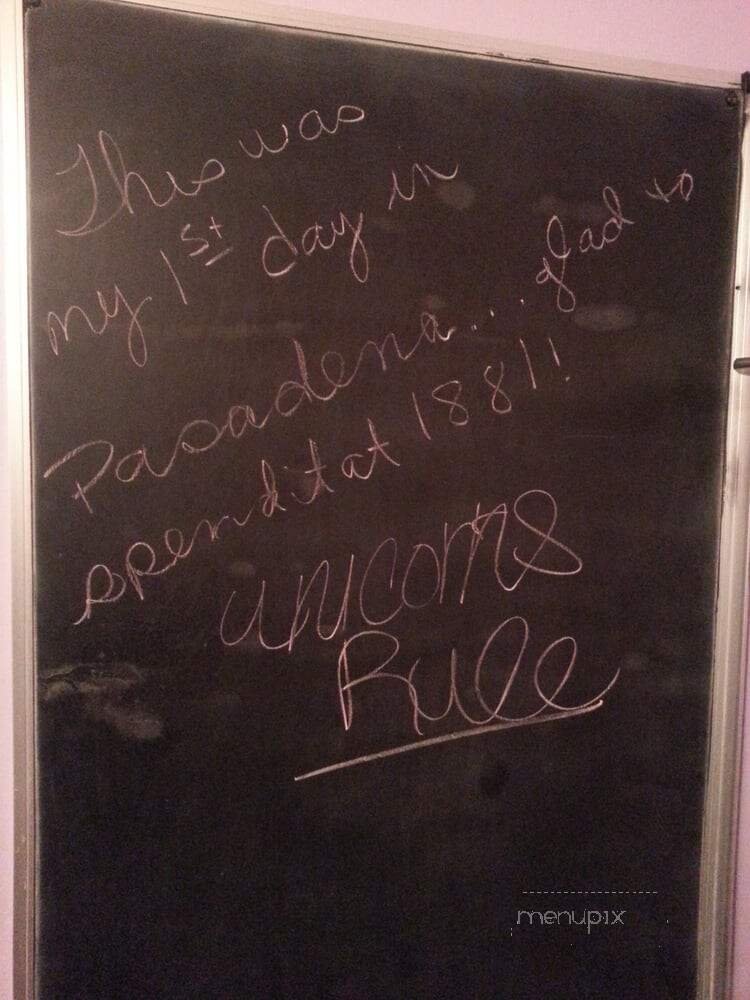 This was
my 1st day in
Pasadena... glad to
spend it at 1881!
unicorns
Rule
menupix